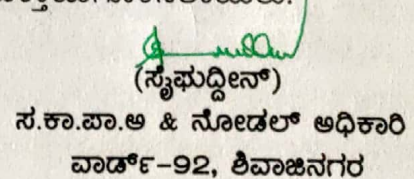 (ಸೈಫುದ್ದೀನ್)
ಸ.ಕಾ.ಪಾ.ಅ & ನೋಡಲ್ ಅಧಿಕಾರಿ
ವಾರ್ಡ್-92, ಶಿವಾಜಿನಗರ